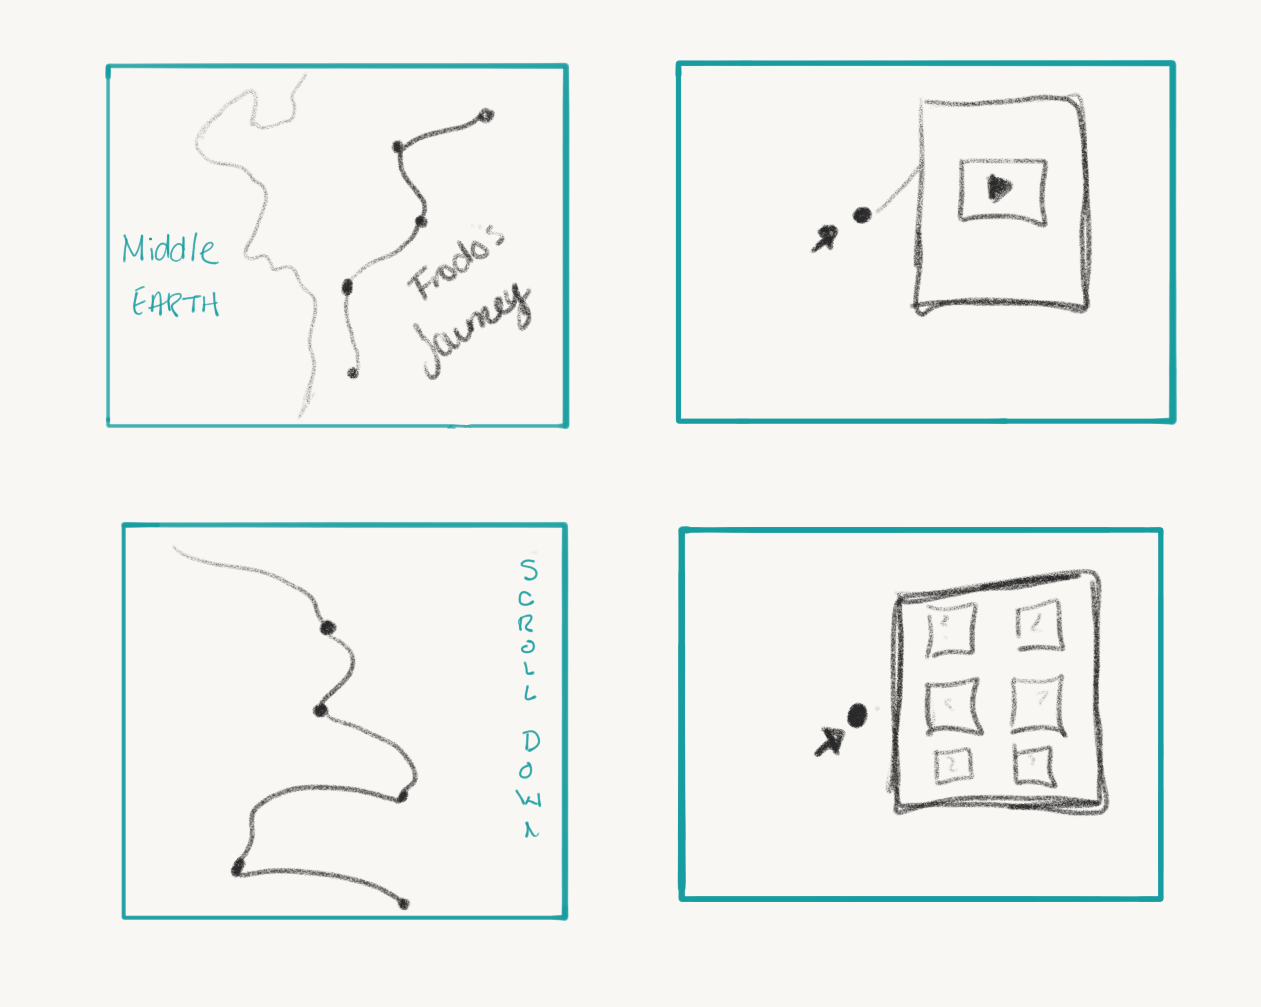 Middle
EARTH
Frodo's
Journey
SCROLL DOWN